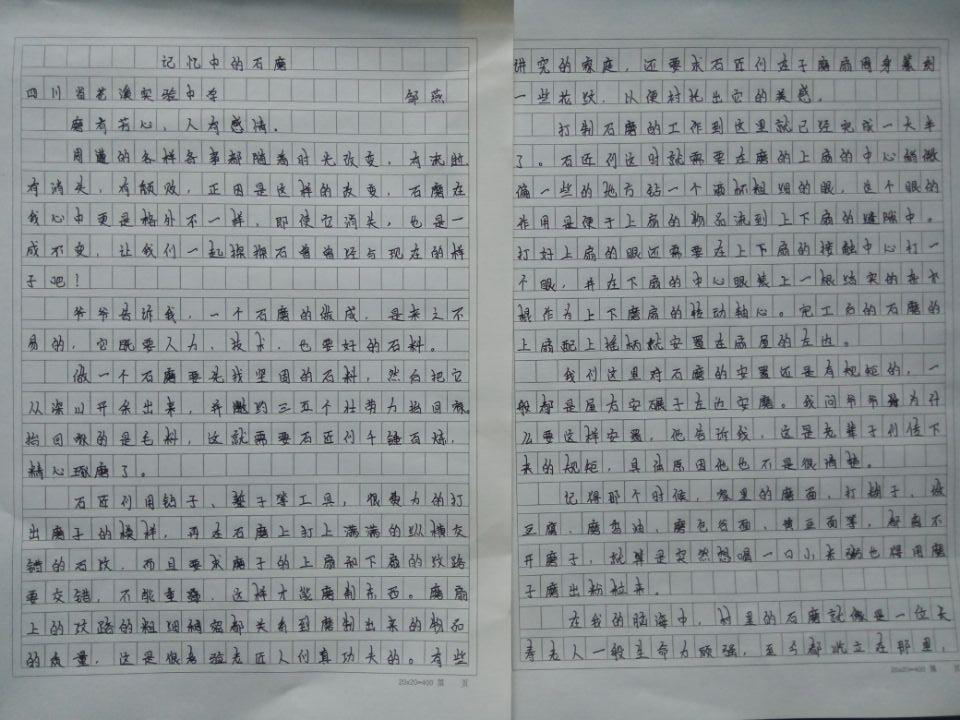 记忆中的石磨
四川省芒溪实验中学 邹燕
磨有芳心，人有感情。
周遭的各样各事都随着时光改变，有流逝
有消失，有颓败，正因是这样的改变，石磨在
我心中更是格外不一样，即使它消失，也是一
成不变，让我们一起探探石磨曾经与现在的样
子吧！
爷爷告诉我，一个石磨的做成，是来之不
易的，它既要人力、技术，也要好的石料。
做一个石磨要先找坚固的石料，然后把它
从深山开采出来，并邀约三五个壮劳力抬回家
抬回家的是毛料，这就需要石匠们千锤百炼，
精心琢磨了。
石匠们用钻子、錾子等工具，很费力的打
出磨子的模样，再在石磨上打上满满的纵横交
错的石纹，而且要求磨子的上扇和下扇的纹路
要交错，不能重叠，这样才能磨制东西。磨扇
上的纹路的粗细稠密都关系到磨制出来的物品
的质量，这是很考验老匠人们真功夫的。有些
20×20=400 第 页
讲究的家庭，还要求石匠们在子磨扇周身篆刻
一些花纹，以便衬托出它的美感。
打制石磨的工作到这里就已经完成一大半
了。石匠们这时就需要在磨的上扇的中心稍微
偏一些的地方钻一个酒杯粗细的眼，这个眼的
作用是便于上扇的物品流到上下扇的缝隙中。
打好上扇的眼还需要在上下扇的接触中心打一
个眼，并在下扇的中心眼装上一根结实的杂木
棍作为上下磨扇的转动轴心。完工后的石磨的
上扇配上摇柄就安置在扇屋的左边。
我们这里对石磨的安置还是有规矩的，一
般都是屋右安碾子左边安磨。我问爷爷为什
么要这样安置，他告诉我，这是老辈子们传下
来的规矩，具体原因他也不是很清楚。
记得那个时候，家里的磨面，打糊子，做
豆腐，磨香油，磨包谷面，黄豆面等，都离不
开磨子，就算是突然想喝一口小米粥也得用磨
子磨出粉粒来。
在我的脑海中，村里的石磨就像是一位长
寿老人一般生命力顽强，至今都屹立在那里，
20×20=400 第 页